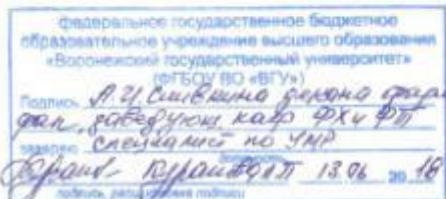 федеральное государственное бюджетное
образовательное учреждение высшего образования
«Воронежский государственный университет»
(ФГБОУ ВО «ВГУ»)
Подпись А.И Сливкина декана фарм
фак, заведующ кафр ФХ и ФТ
заверяю специалист по УМР
должность
13.06 20 18
подпись, расшифровка подписи